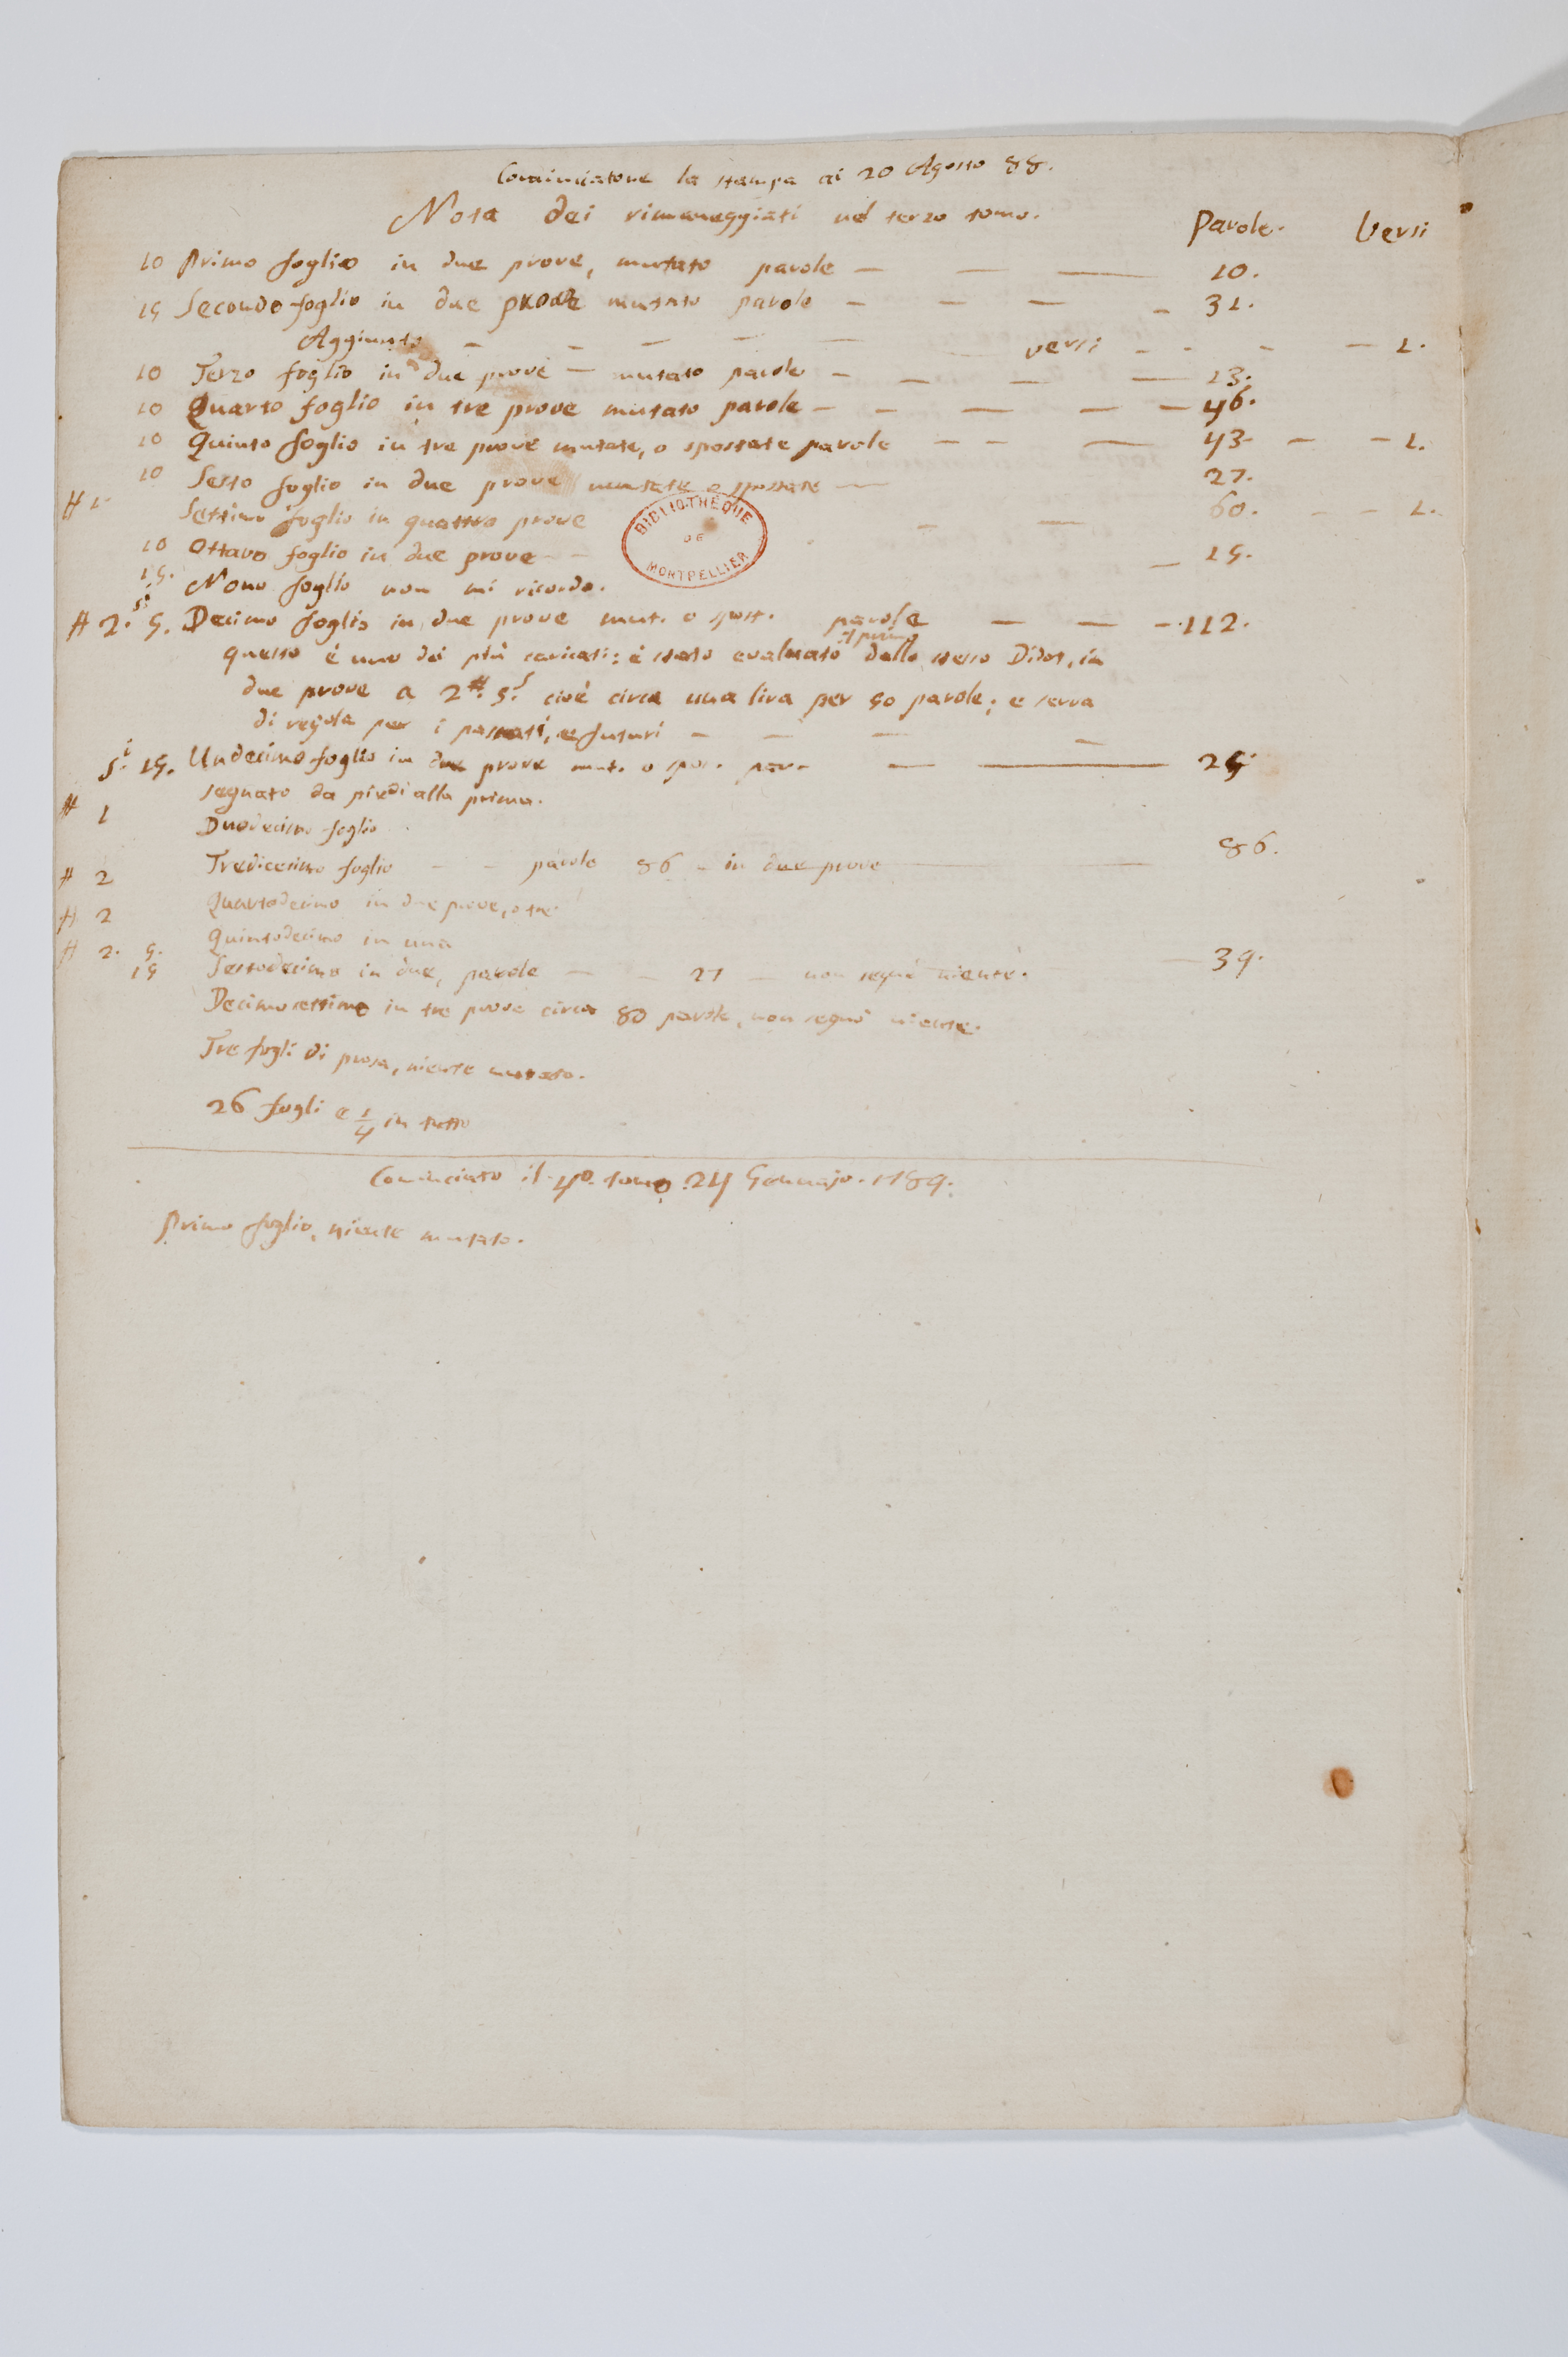 Cominciatone la stampa ai 20 Agosto 88.
Nota dei rimaneggiati nel terzo tomo. Parole. Versi
10 Primo foglio in due prove, mutato parole — — — 10.
15 Secondo foglio in due prove mutato parole — — — — 31.
Aggiunto — — — — — versi — — — — 1.
10 Terzo foglio in due prove — mutato parole — — — — 13.
10 Quarto foglio in tre prove mutato parole — — — — — 46.
10 Quinto foglio in tre prove mutate, o spostate parole — — — 43. — — 1.
10 Sesto foglio in due prove mutate o spostate — 27.
# 1 Settimo foglio in quattro prove — — 60. — — 1.
BIBLIOTHEQUE DE MONTPELLIER
10 Ottavo foglio in due prove — — — 15.
15. Nono foglio non mi ricordo.
# 2. s. 5. Decimo foglio in due prove mut. o spost. parole — — — 112.
questo è uno dei più caricati: è stato evaluato dallo stesso Didot, in
due prove a 2# 5.s cioè circa una lira per 50 parole; e serva
di regola per i passati, e futuri — — — —
s. 15. Undecimo foglio in due prove mut. o spos. par. — — 25.
segnato da piedi alla prima.
# 1 Duodecimo foglio
# 2 Tredicesimo foglio — — parole 86 — in due prove — 86.
# 2 Quartodecimo in due prove, o tre
# 2. 5. Quintodecimo in una
15 Sestodecimo in due, parole — — 27 — non segnò niente. — 39.
Decimosettimo in tre prove circa 80 parole, non segnò niente.
Tre fogli di prosa, niente mutato.
26 fogli e 1/4 in tutto
Cominciato il 4o. tomo 24 Gennajo. 1789.
Primo foglio, niente mutato.